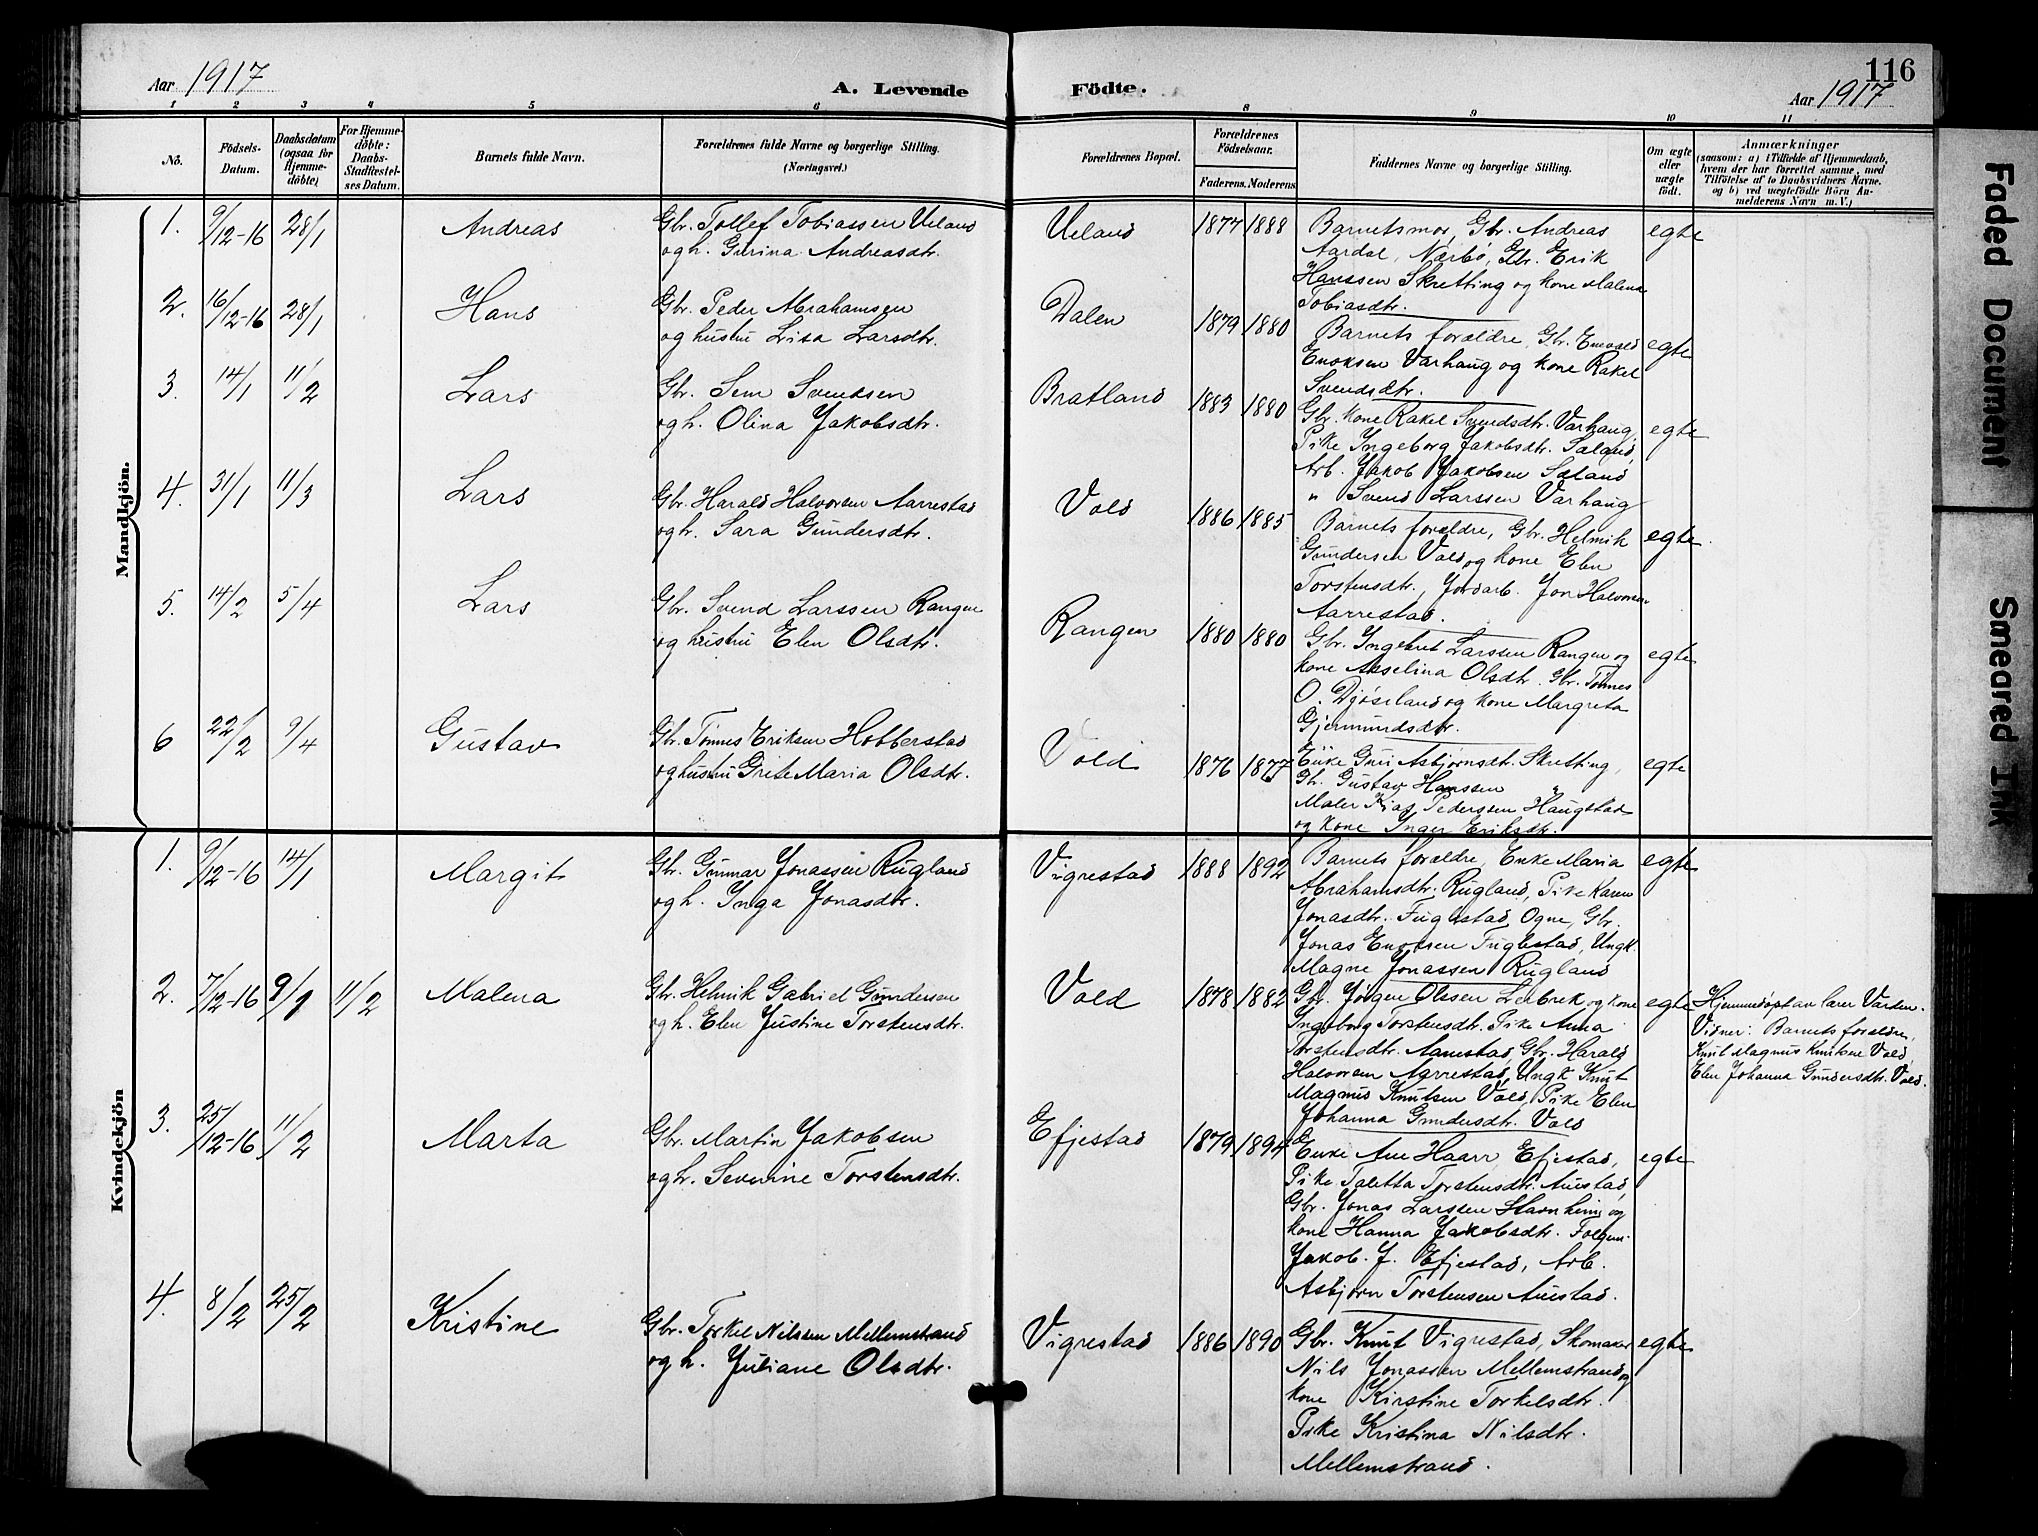 116
Aar 1917 A. Levende Födte. Aar 1917
1 2 3 4 5 6 8 9 10 11
No. Födsels-Datum. Daabsdatum (ogsaa for Hjemme-döbte) For Hjemme-döbte: Daabs-Stadfestel-ses Datum. Barnets fulde Navn. Forældrenes fulde Navne og borgerlige Stilling. (Næringsvei.) Forældrenes Bopæl. Forældrenes Födselsaar. Faderens. Moderens. Faddernes Navne og borgerlige Stilling. Om ægte eller uægte födt. Anmærkninger
(saasom: a) i Tilfælde af Hjemmedaab,
hvem der har forrettet samme, med
Tilföielse af to Daabsvidners Navne.
og b) ved uægtefödte Börn An-
melderens Navn m. V.)
Mandkjön.
1. 9/12-16 28/1 Andreas Gbr. Tollef Tobiassen Ueland
og h. Gurina Andreasdtr.
Ueland 1877 1888 Barnets mor, Gbr. Andreas
Aardal, Nærbö, Gbr. Erik
Hanssen Skretting og kone Malena
Tobiasdtr.
egte
2. 16/12-16 28/1 Hans Gbr. Peder Abrahamsen
og hustru Lisa Larsdtr.
Dalen 1879 1880 Barnets forældre, Gbr. Enevald
Enoksen Varhaug og kone Rakel
Svendsdtr.
egte
3. 14/1 11/2 Lars Gbr. Sem Svendsen
og h. Olina Jakobsdtr.
Bratland 1883 1880 Gbr. kone Rakel Svendsdtr. Varhaug,
Pike Ingeborg Jakobsdtr. Sæland,
Arb. Jakob Jakobsen Sæland
" Svend Larssen Varhaug
egte
4. 31/1 11/3 Lars Gbr. Harald Halvorsen Aarrestad
og h. Sara Gundersdtr.
Vold 1886 1885 Barnets forældre, Gbr. Helmik
Gundersen Vold og kone Elen
Torstensdtr., Jordarb. Jon Halvorsen
Aarrestad.
egte.
5. 14/2 5/4 Lars Gbr. Svend Larssen Rangen
og hustru Elen Olsdtr.
Rangen 1880 1880 Gbr. Ingebret Larssen Rangen og
kone Aselina Olsdtr. Gbr. Tönnes
O. Djöseland og kone Margreta
Gjermundsdtr.
egte
6 22/2 9/4 Gustav Gbr. Tönnes Eriksen Hobberstad
og hustru Grete Maria Olsdtr.
Vold 1876 1877 Enke Guri Asbjörnsdtr. Skretting,
Gb. Gustav Hanssen "
Maler Pederssen Haugstad
og kone Inger Eriksdtr.
egte
Kvindekjön
1. 9/12-16 14/1 Margit Gbr. Gunnar Jonassen Rugland
og h. Inga Jonasdtr.
Vigrestad 1888 1892 Barnets forældre, Enke Maria
Abrahamsdtr. Rugland, Pike Karen
Jonasdtr. Fuglestad, Ogne, Gbr.
Jonas Enoksen Fuglestad, Ungk.
Magne Jonassen Rugland
egte
2. 7/12-16 9/1 11/2 Malena Gbr. Helmik Gabriel Gundersen
og h. Elen Justine Torstensdtr.
Vold 1878 1882 Gbr. Jörgen Olssen Lerbrek og kone
Ingeborg Torstensdtr. Pike Anna
Torstensdtr. Aanestad, Gbr. Harald
Halvorsen Aarrestad, Ungk Knut
Magnus Knutsen Vold, Pike Elen
Johanna Gundersdtr. Vold
egte Hjemmedöpt av lærer Varden.
Vidner: Barnets forældre,
Knut Magnus Knutsen Vold,
Elen Johanna Gundersdtr. Vold.
3. 25/12-16 11/2 Marta Gbr. Martin Jakobsen
og h. Severine Torstensdtr.
Efjestad 1879 1894 Enke Ane Haarr Efjestad,
Pike Taletta Torstensdtr. Auestad,
Gbr. Jonas Larssen Stavnheim og
kone Hanna Jakobsdtr. Folgem.
Jakob. J. Efjestad, Arb.
Asbjörn Torstensen Auestad.
egte
4. 8/2 25/2 Kristine Gbr. Torkel Nilssen Mellemstrand
og h. Juliane Olsdtr.
Vigrestad 1886 1890 Gbr. Knut Vigrestad, Skomaker
Nils Jonassen Mellemstrand og
kone Kirstine Torkelsdtr.
Pike Kristina Nilsdtr.
Mellemstrand.
egte
Faded Document
Smeared Ink